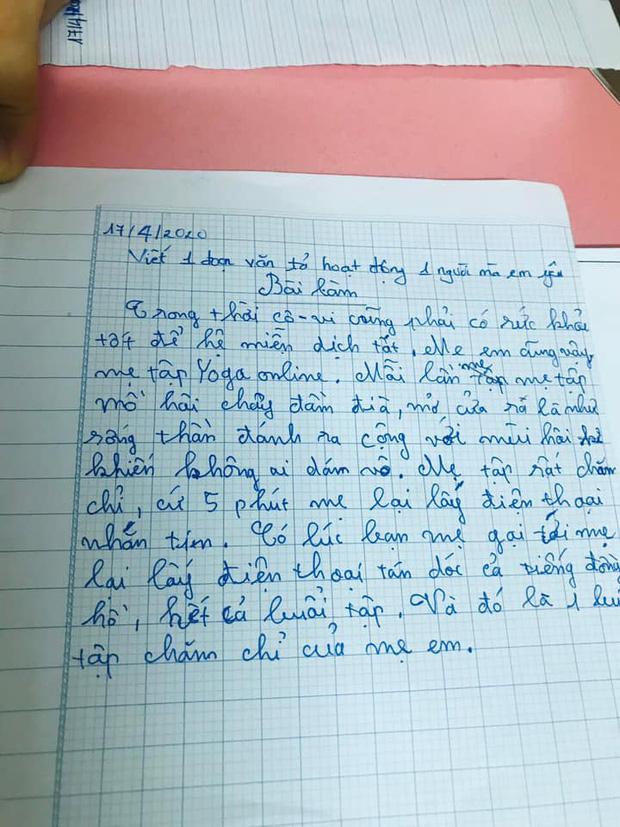 17/4/20
17/4/2020
Viết 1 đoạn văn tả hoạt động 1 người mà em yêu
Bài làm
Trong thời cô-vi cũng phải có sức khỏe
tốt để hệ miễn dịch tốt. Mẹ em cũng vậy
mẹ tập Yoga online. Mỗi lần mẹ tập mẹ tập
mồ hôi chảy đầm đìa, mở cửa ra là như
sóng thần đánh ra cộng với mùi hôi
khiến không ai dám vô. Mẹ tập rất chăm
chỉ, cứ 5 phút mẹ lại lấy điện thoại
nhắn tin. Có lúc bạn mẹ gọi tới mẹ
lại lấy điện thoại tán dóc cả tiếng đồng
hồ, hết cả buổi tập. Và đó là 1
tập chăm chỉ của mẹ em.